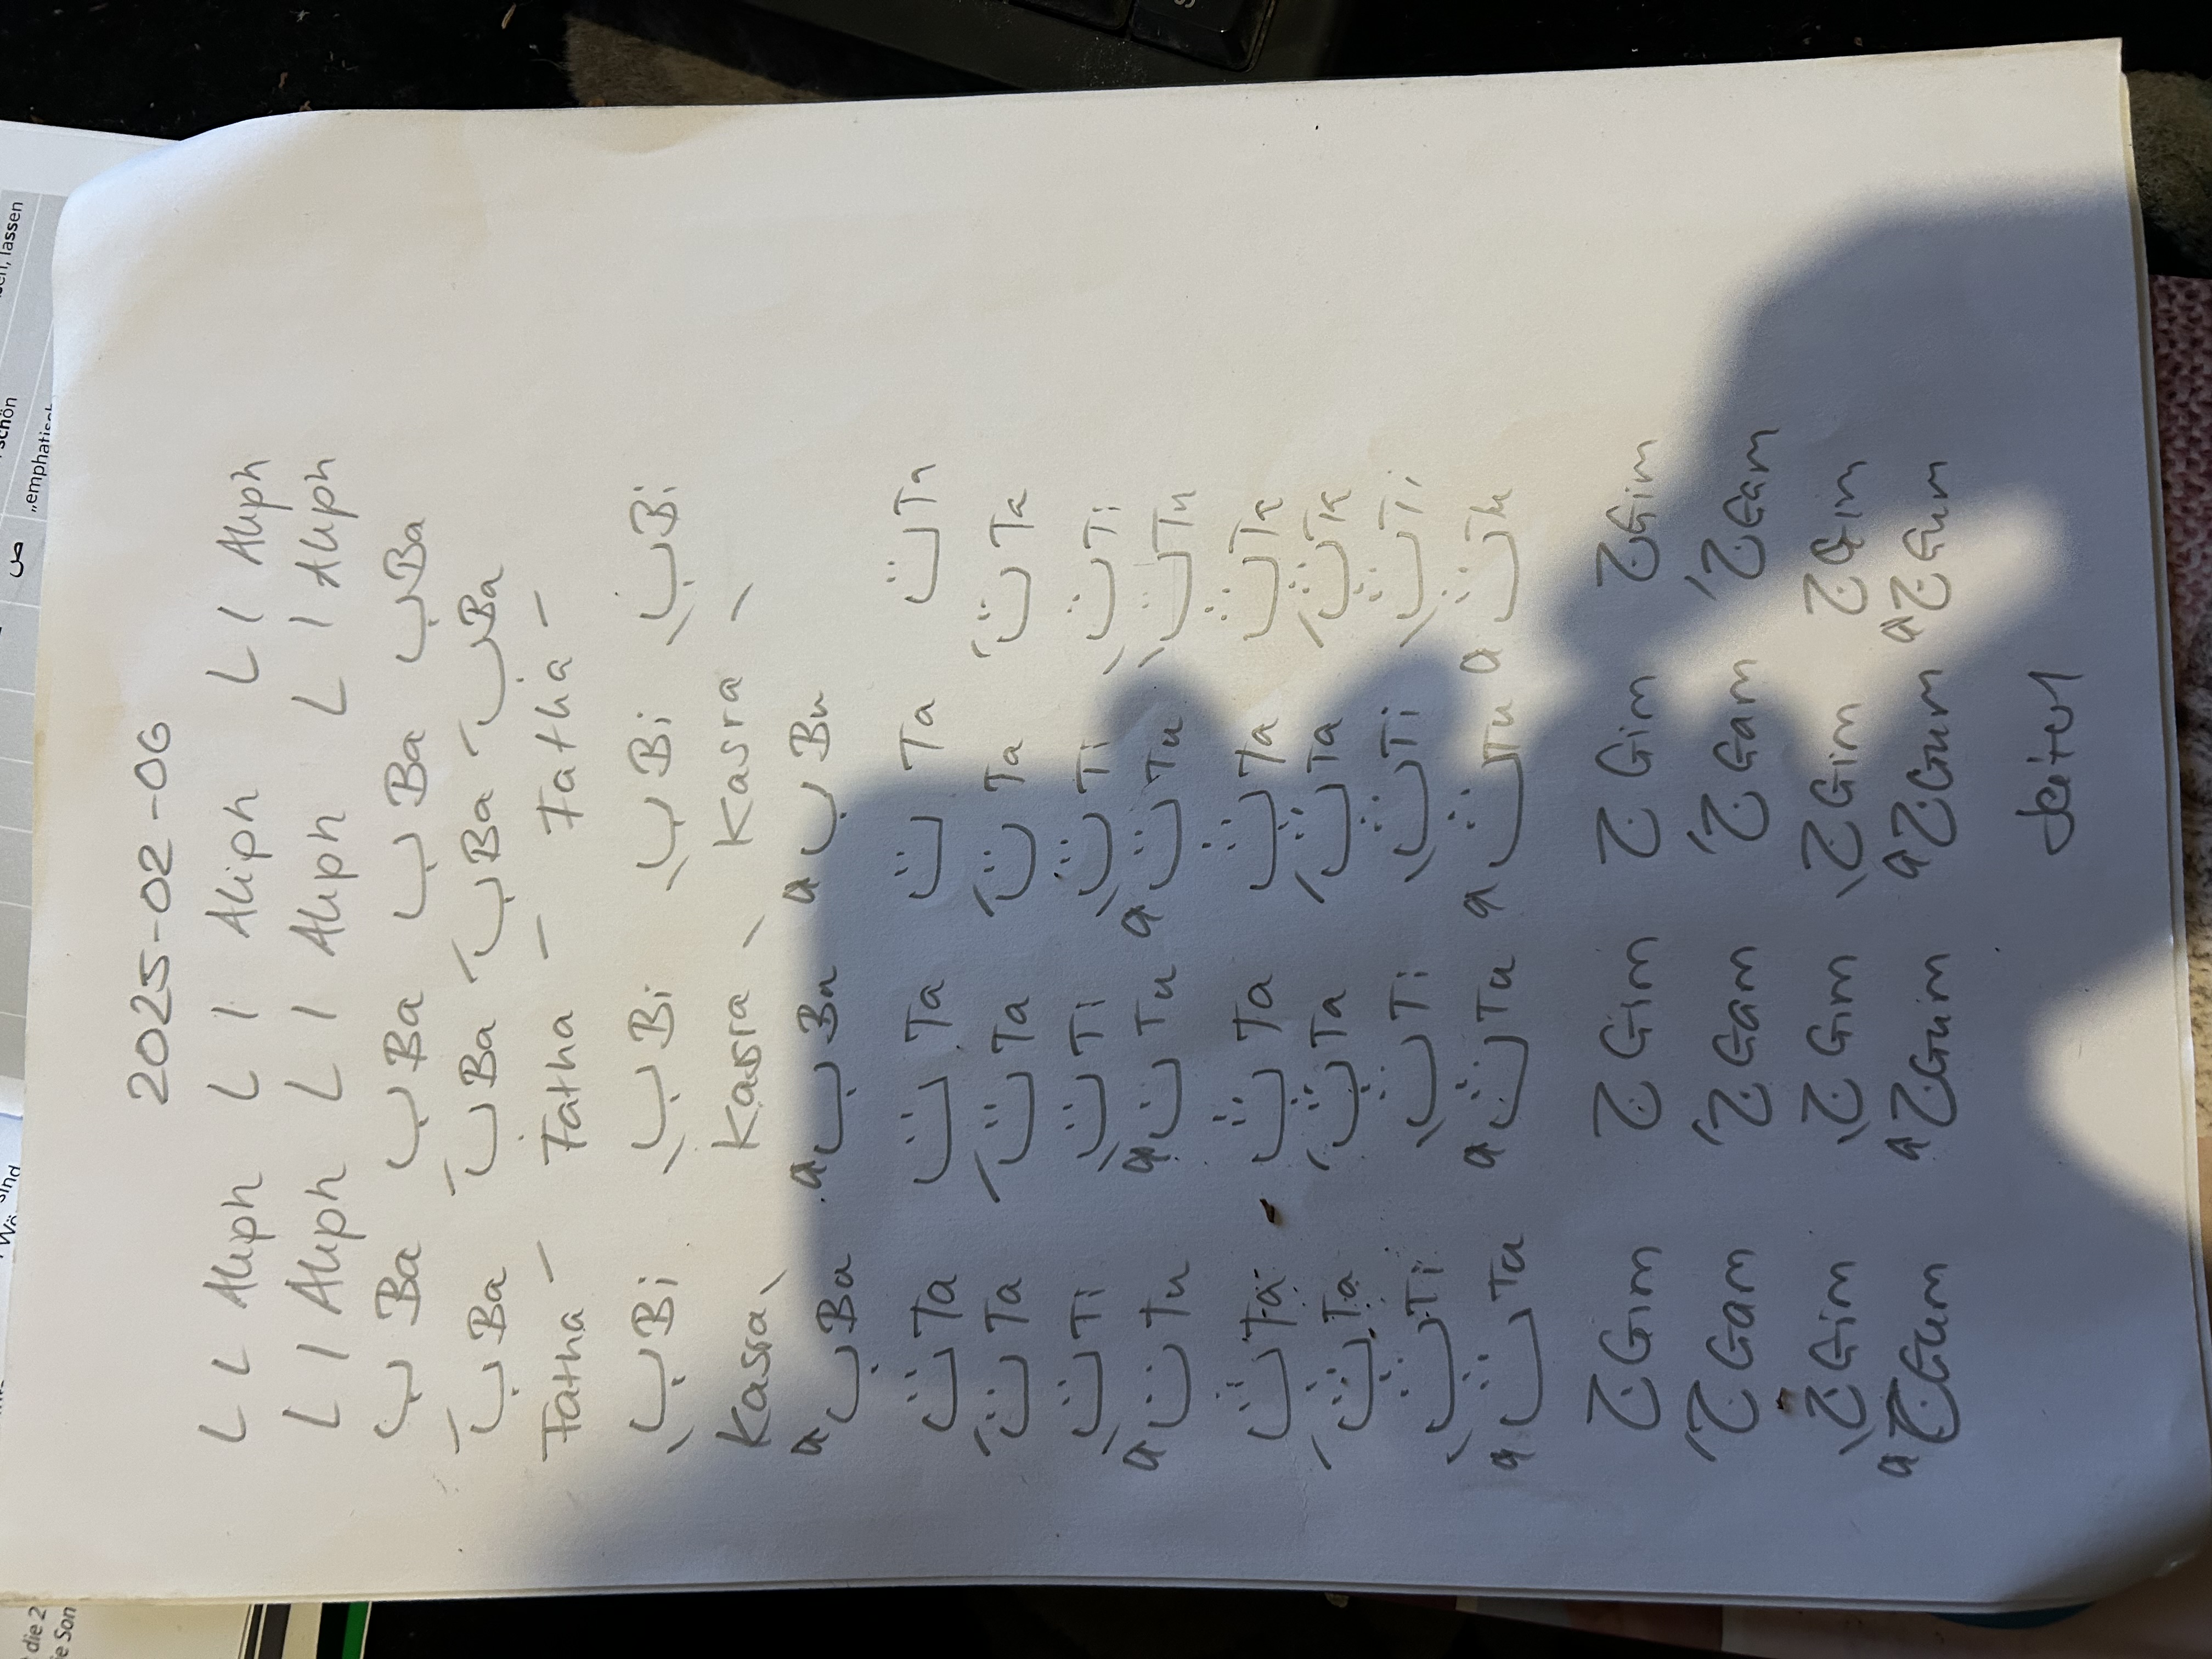 2025-02-06
L L Aliph L I Aliph L I Aliph
L I Aliph L I Aliph L I Aliph
ب Ba ب Ba ب Ba ب Ba
بَ Ba بَ Ba بَ Ba بَ Ba
Fatha – Fatha – Fatha –
بِ Bi بِ Bi بِ Bi بِ Bi
Kasra \ Kasra \ Kasra \
بُ Bu بُ Bu بُ Bu
ت Ta ت Ta ت Ta ت Ta
تَ Ta تَ Ta تَ Ta تَ Ta
تِ Ti تِ Ti تِ Ti تِ Ti
تُ Tu تُ Tu تُ Tu تِ Tu
ث Ta ث Ta ث Ta ث Ta
ثَ Ta ثَ Ta ثَ Ta ثَ Ta
ثِ Ti ثِ Ti ثِ Ti ثِ Ti
ثُ Tu ثُ Tu ثُ Tu ثُ Tu
ج Gim ج Gim ج Gim ج Gim
جَ Gam جَ Gam جَ Gam جَ Gam
جِ Gim جِ Gim جِ Gim ج Gim
جُ Gum جُ Guim جُ Gum جُ Gum
Seite 1
ص
„emphatisch
schön
lassen
sind
die 2